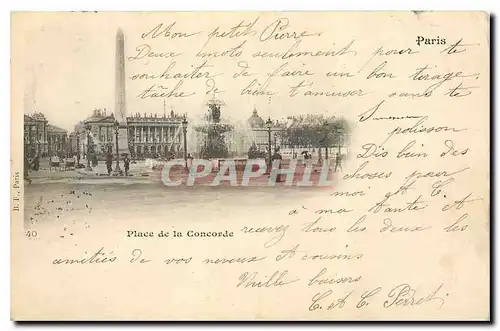 Mon petit Pierre
Paris
Deux mots seulement pour te
souhaiter de faire un bon tirage
tâche de bien t'amuser sans te
polisson
Dis bien des
choses pour
moi et A. C.
à ma tante et
recevez tous les deux les
Place de la Concorde
40
B. F., Paris
CPARHILL
amitiés de vos neveux et cousins
Mille baisers
C. A. C. Perret